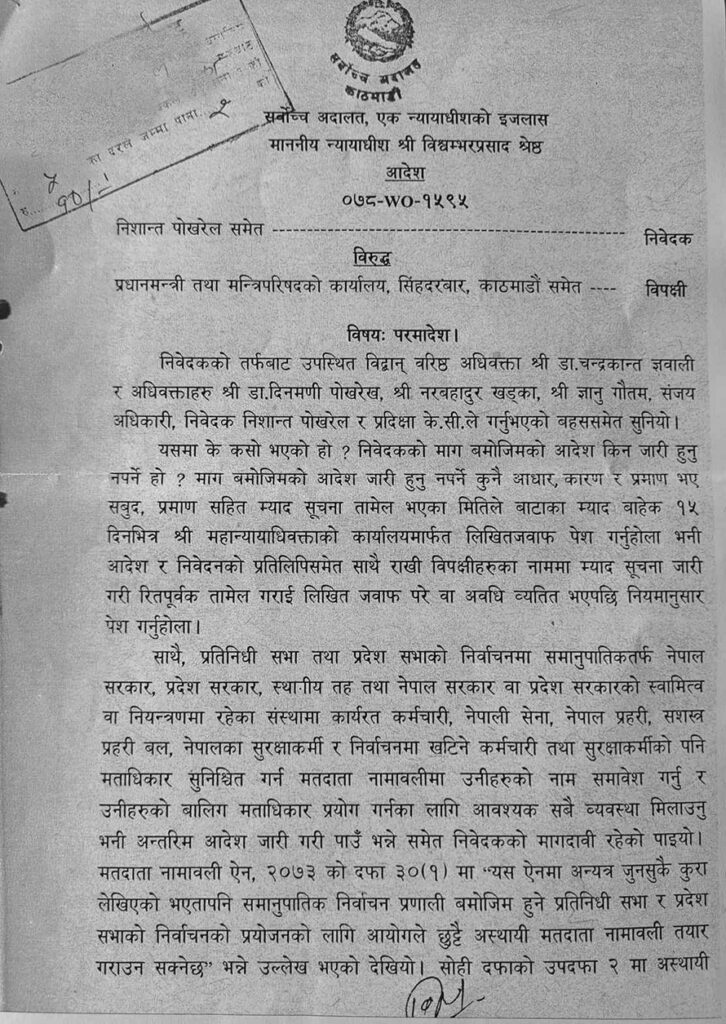 सर्वोच्च अदालत
काठमाडौं
का दरले जम्मा पाना. २
रु.... १०/-
सर्वोच्च अदालत, एक न्यायाधीशको इजलास
माननीय न्यायाधीश श्री विश्वम्भरप्रसाद श्रेष्ठ
आदेश
०७८-WO-१५९५
निशान्त पोखरेल समेत ------------------------------------------------ निवेदक
विरुद्ध
प्रधानमन्त्री तथा मन्त्रिपरिषदको कार्यालय, सिंहदरबार, काठमाडौं समेत ---- विपक्षी
विषयः परमादेश।
निवेदकको तर्फबाट उपस्थित विद्वान् वरिष्ठ अधिवक्ता श्री डा.चन्द्रकान्त ज्ञवाली
र अधिवक्ताहरु श्री डा.दिनमणी पोखरेख, श्री नरबहादुर खड्का, श्री ज्ञानु गौतम, संजय
अधिकारी, निवेदक निशान्त पोखरेल र प्रदिक्षा के.सी.ले गर्नुभएको बहससमेत सुनियो।
यसमा के कसो भएको हो ? निवेदकको माग बमोजिमको आदेश किन जारी हुनु
नपर्ने हो ? माग बमोजिमको आदेश जारी हुनु नपर्ने कुनै आधार, कारण र प्रमाण भए
सबुद, प्रमाण सहित म्याद सूचना तामेल भएका मितिले बाटाका म्याद बाहेक १५
दिनभित्र श्री महान्यायाधिवक्ताको कार्यालयमार्फत लिखितजवाफ पेश गर्नुहोला भनी
आदेश र निवेदनको प्रतिलिपिसमेत साथै राखी विपक्षीहरुका नाममा म्याद सूचना जारी
गरी रितपूर्वक तामेल गराई लिखित जवाफ परे वा अवधि व्यतित भएपछि नियमानुसार
पेश गर्नुहोला।
साथै, प्रतिनिधी सभा तथा प्रदेश सभाको निर्वाचनमा समानुपातिकतर्फ नेपाल
सरकार, प्रदेश सरकार, स्थानीय तह तथा नेपाल सरकार वा प्रदेश सरकारको स्वामित्व
वा नियन्त्रणमा रहेका संस्थामा कार्यरत कर्मचारी, नेपाली सेना, नेपाल प्रहरी, सशस्त्र
प्रहरी बल, नेपालका सुरक्षाकर्मी र निर्वाचनमा खटिने कर्मचारी तथा सुरक्षाकर्मीको पनि
मताधिकार सुनिश्चित गर्न मतदाता नामावलीमा उनीहरुको नाम समावेश गर्नु र
उनीहरुको बालिग मताधिकार प्रयोग गर्नका लागि आवश्यक सबै व्यवस्था मिलाउनु
भनी अन्तरिम आदेश जारी गरी पाउँ भन्ने समेत निवेदकको मागदावी रहेको पाइयो।
मतदाता नामावली ऐन, २०७३ को दफा ३०(१) मा "यस ऐनमा अन्यत्र जुनसुकै कुरा
लेखिएको भएतापनि समानुपातिक निर्वाचन प्रणाली बमोजिम हुने प्रतिनिधी सभा र प्रदेश
सभाको निर्वाचनको प्रयोजनको लागि आयोगले छुट्टै अस्थायी मतदाता नामावली तयार
गराउन सक्नेछ" भन्ने उल्लेख भएको देखियो। सोही दफाको उपदफा २ मा अस्थायी